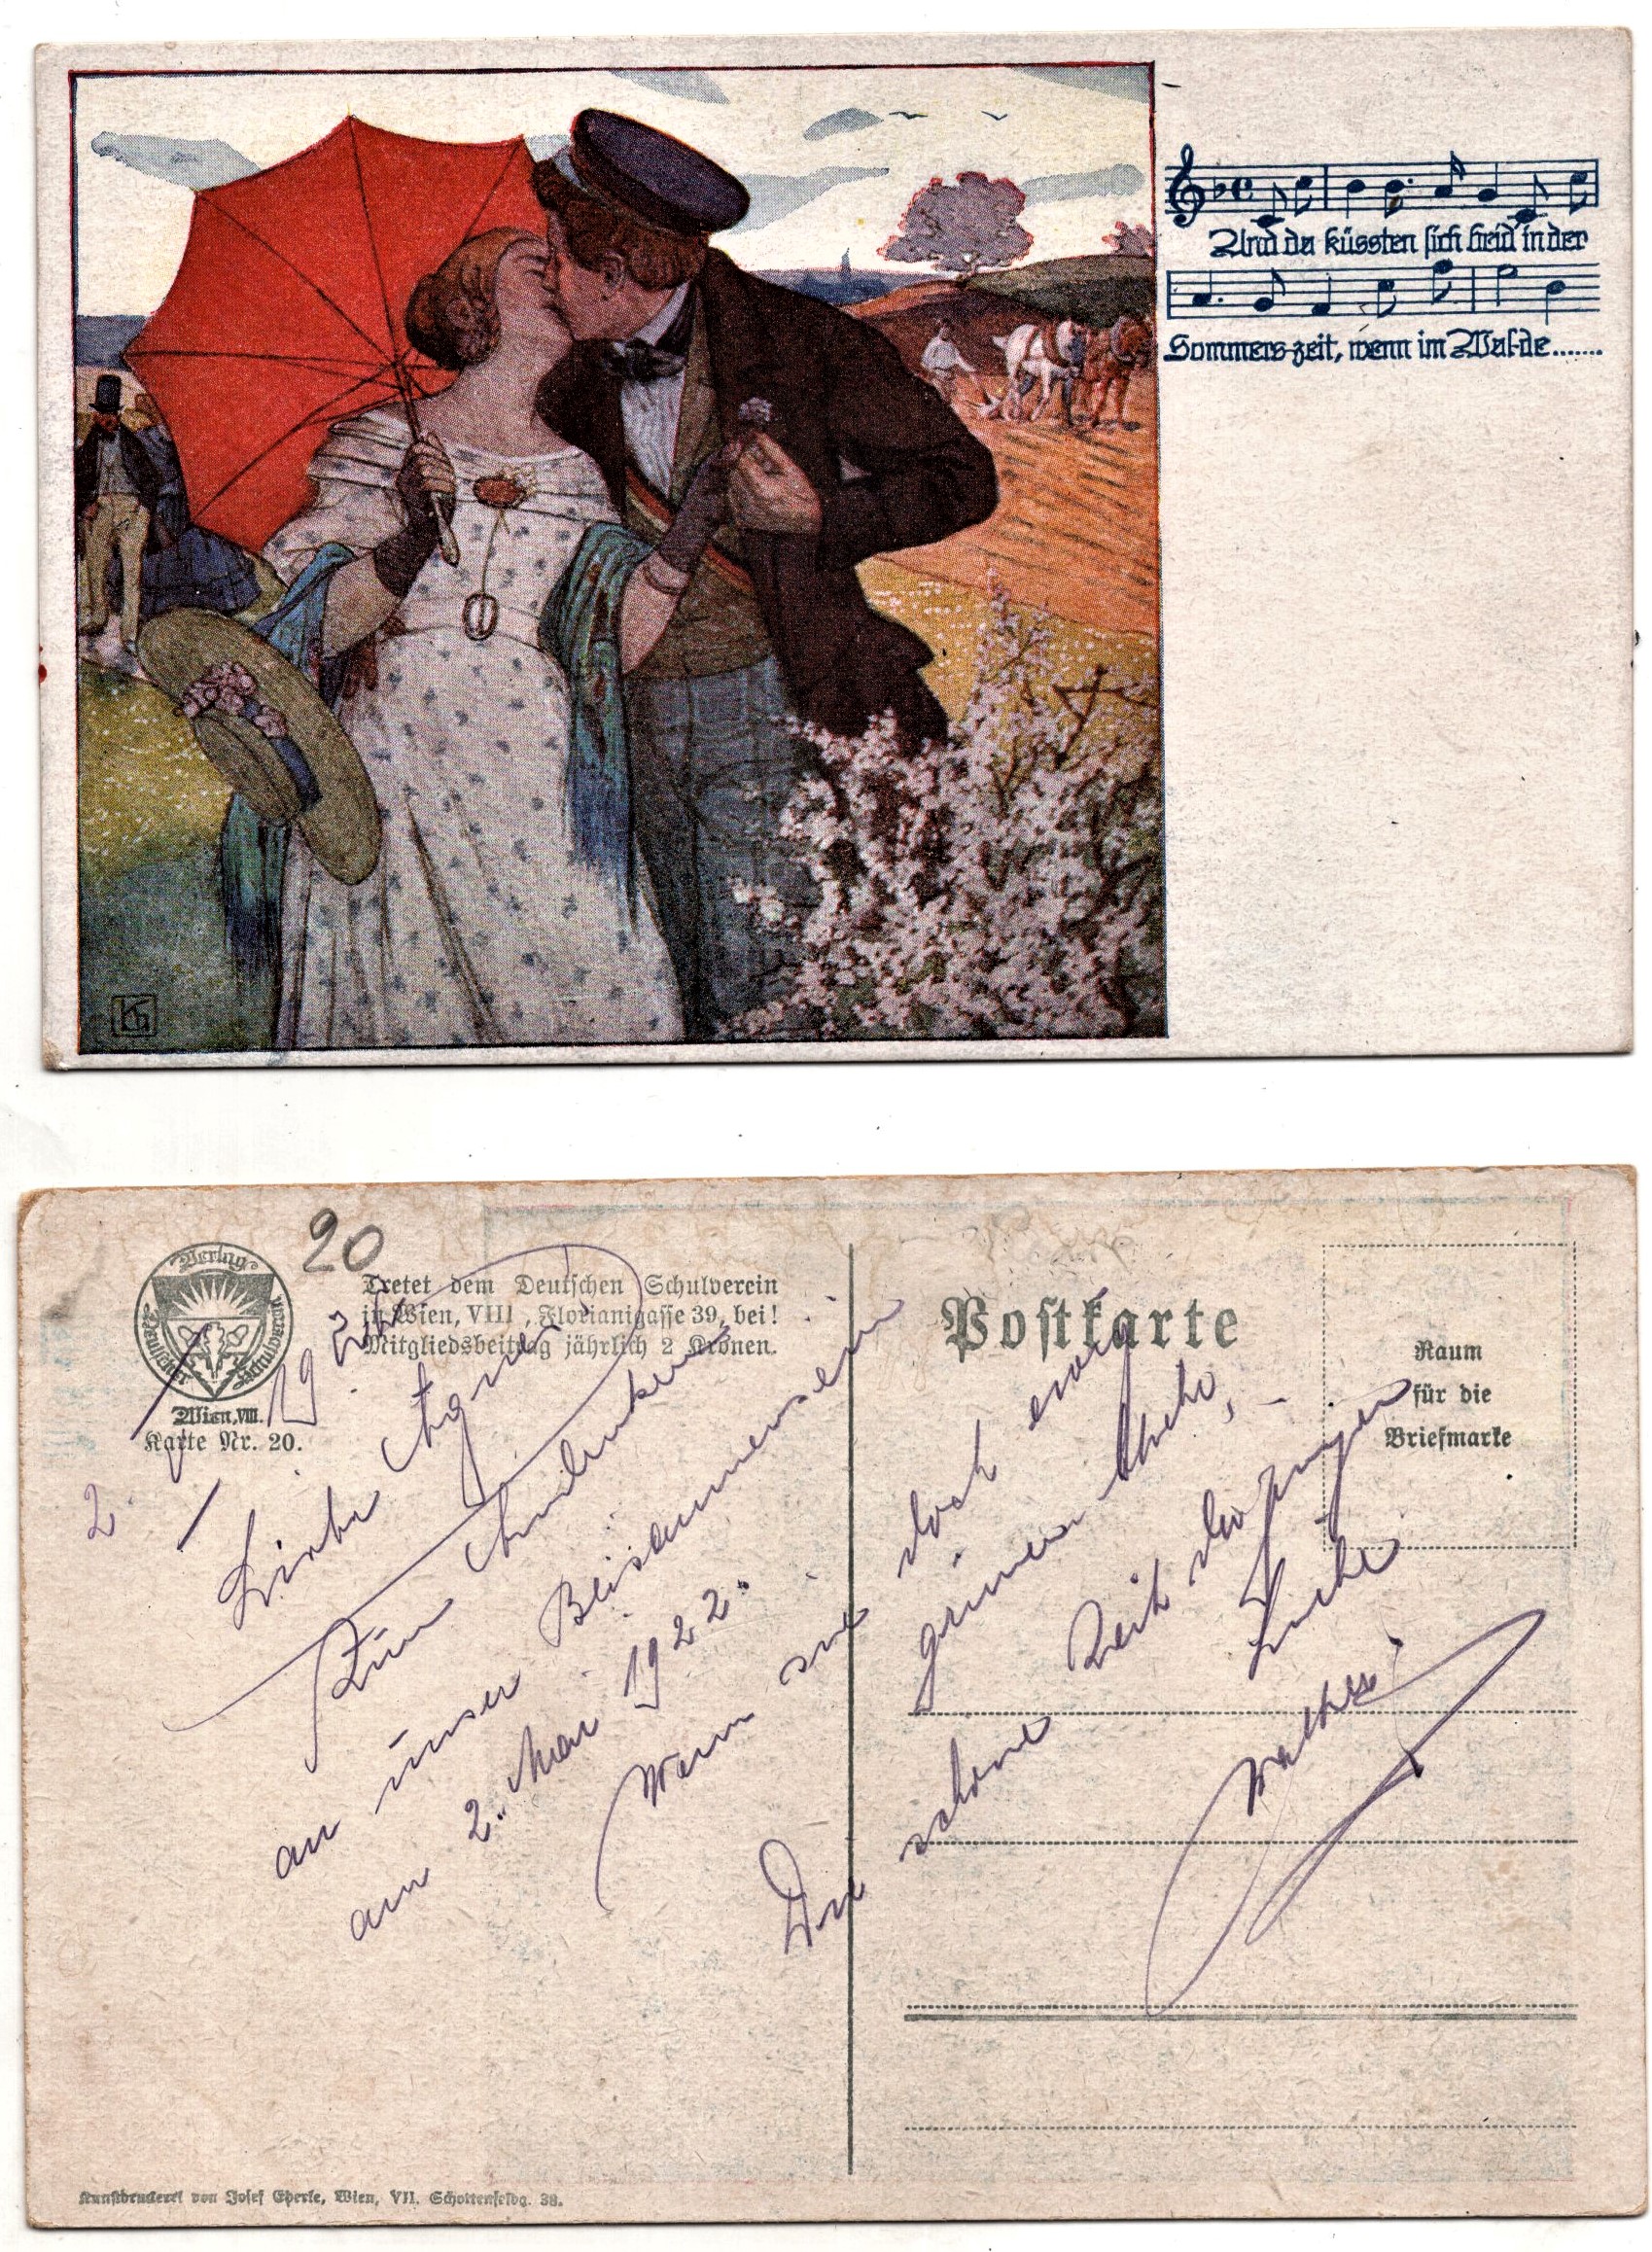 Und da küssten sich beid in der
Sommers-zeit, wenn im Wal-de.......
KG
20
Verlag
Deutscher Schulverein
Wien, VIII.
Karte Nr. 20.
Tretet dem Deutschen Schulverein
in Wien, VIII, Florianigasse 39, bei!
Mitgliedsbeitrag jährlich 2 Kronen.
Postkarte
Raum
für die
Briefmarke
2. V. 1922
Liebe Agnes
Zum Andenken
an unser Beisammensein
am 2. Mai 1922.
Wenn sie doch ewig
grünen bliebe,
Die schöne Zeit der jungen
Liebe
Kunstdruckerei von Josef Eberle, Wien, VII. Schottenfeldg. 38.